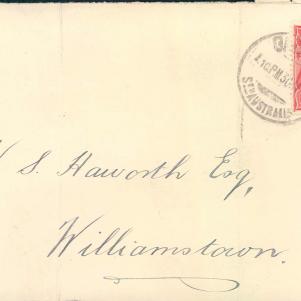 4.10PM30
STH AUSTRALIA
S. Haworth Esq,
Williamstown.